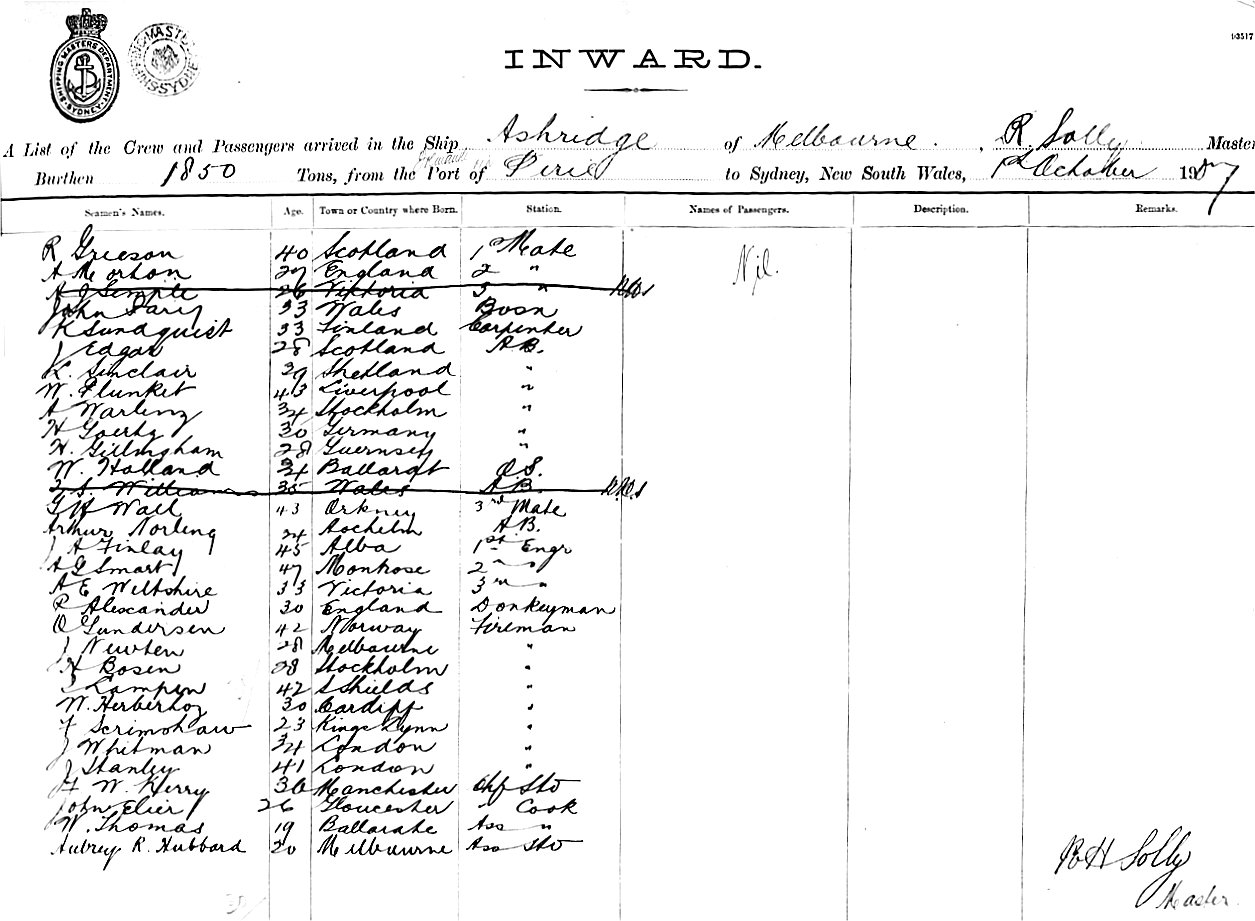 SHIPPING MASTERS DEPARTMENT SYDNEY
13517
INWARD.
A List of the Crew and Passengers arrived in the Ship Ashridge of Melbourne, R. Solly Master
Burthen 1850 Tons, from the Port of Pirie to Sydney, New South Wales, 1st October 1907
Seamen's Names. Age. Town or Country where Born. Station. Names of Passengers. Description. Remarks.
R Grieson 40 Scotland 1st Mate Nil.
A Morton 27 England 2 "
A J Semple 26 Victoria 3 "
John Pary 33 Wales Bosn
K Sundquist 33 Finland Carpenter
J Edgar 28 Scotland A.B.
L. Sinclair 39 Shetland "
W. Plunket 43 Liverpool "
A Warling 34 Stockholm "
H Goerby 30 Germany "
H. Gillingham 28 Guernsey "
W. Holland 34 Ballarat O.S.
S. Williams 35 Wales A.B.
G H Wall 43 Orkney 3rd Mate
Arthur Norling 24 A.B.
J A Finlay 45 Alba 1st Engr
A G Smart 47 Montrose 2nd "
A E Weltshire 33 Victoria 3rd "
P Alexander 30 England Donkeyman
O Gundersen 42 Norway Fireman
J Newten 28 Melbourne "
H Bosen 28 Stockholm "
Lampen 42 S Shields "
W. Herberhoz 30 Cardiff "
F Scrimshaw 23 Kings Lynn "
J Whitman 34 London "
J Stanley 41 London "
H W. Kerry 36 Manchester Chf Std
John Elier 26 Gloucester " Cook
W. Thomas 19 Ballarate Ass "
Aubrey R. Hubbard 20 Melbourne Ass Std
R H Solly
Master.